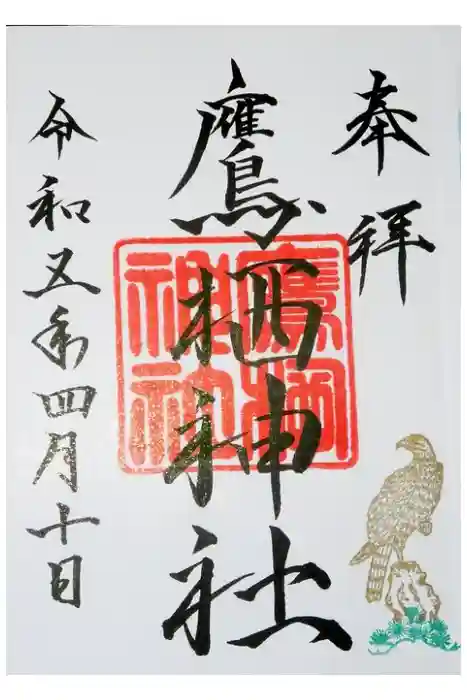 奉拝
鷹栖神社
鷹栖
神社
令和五年四月十日